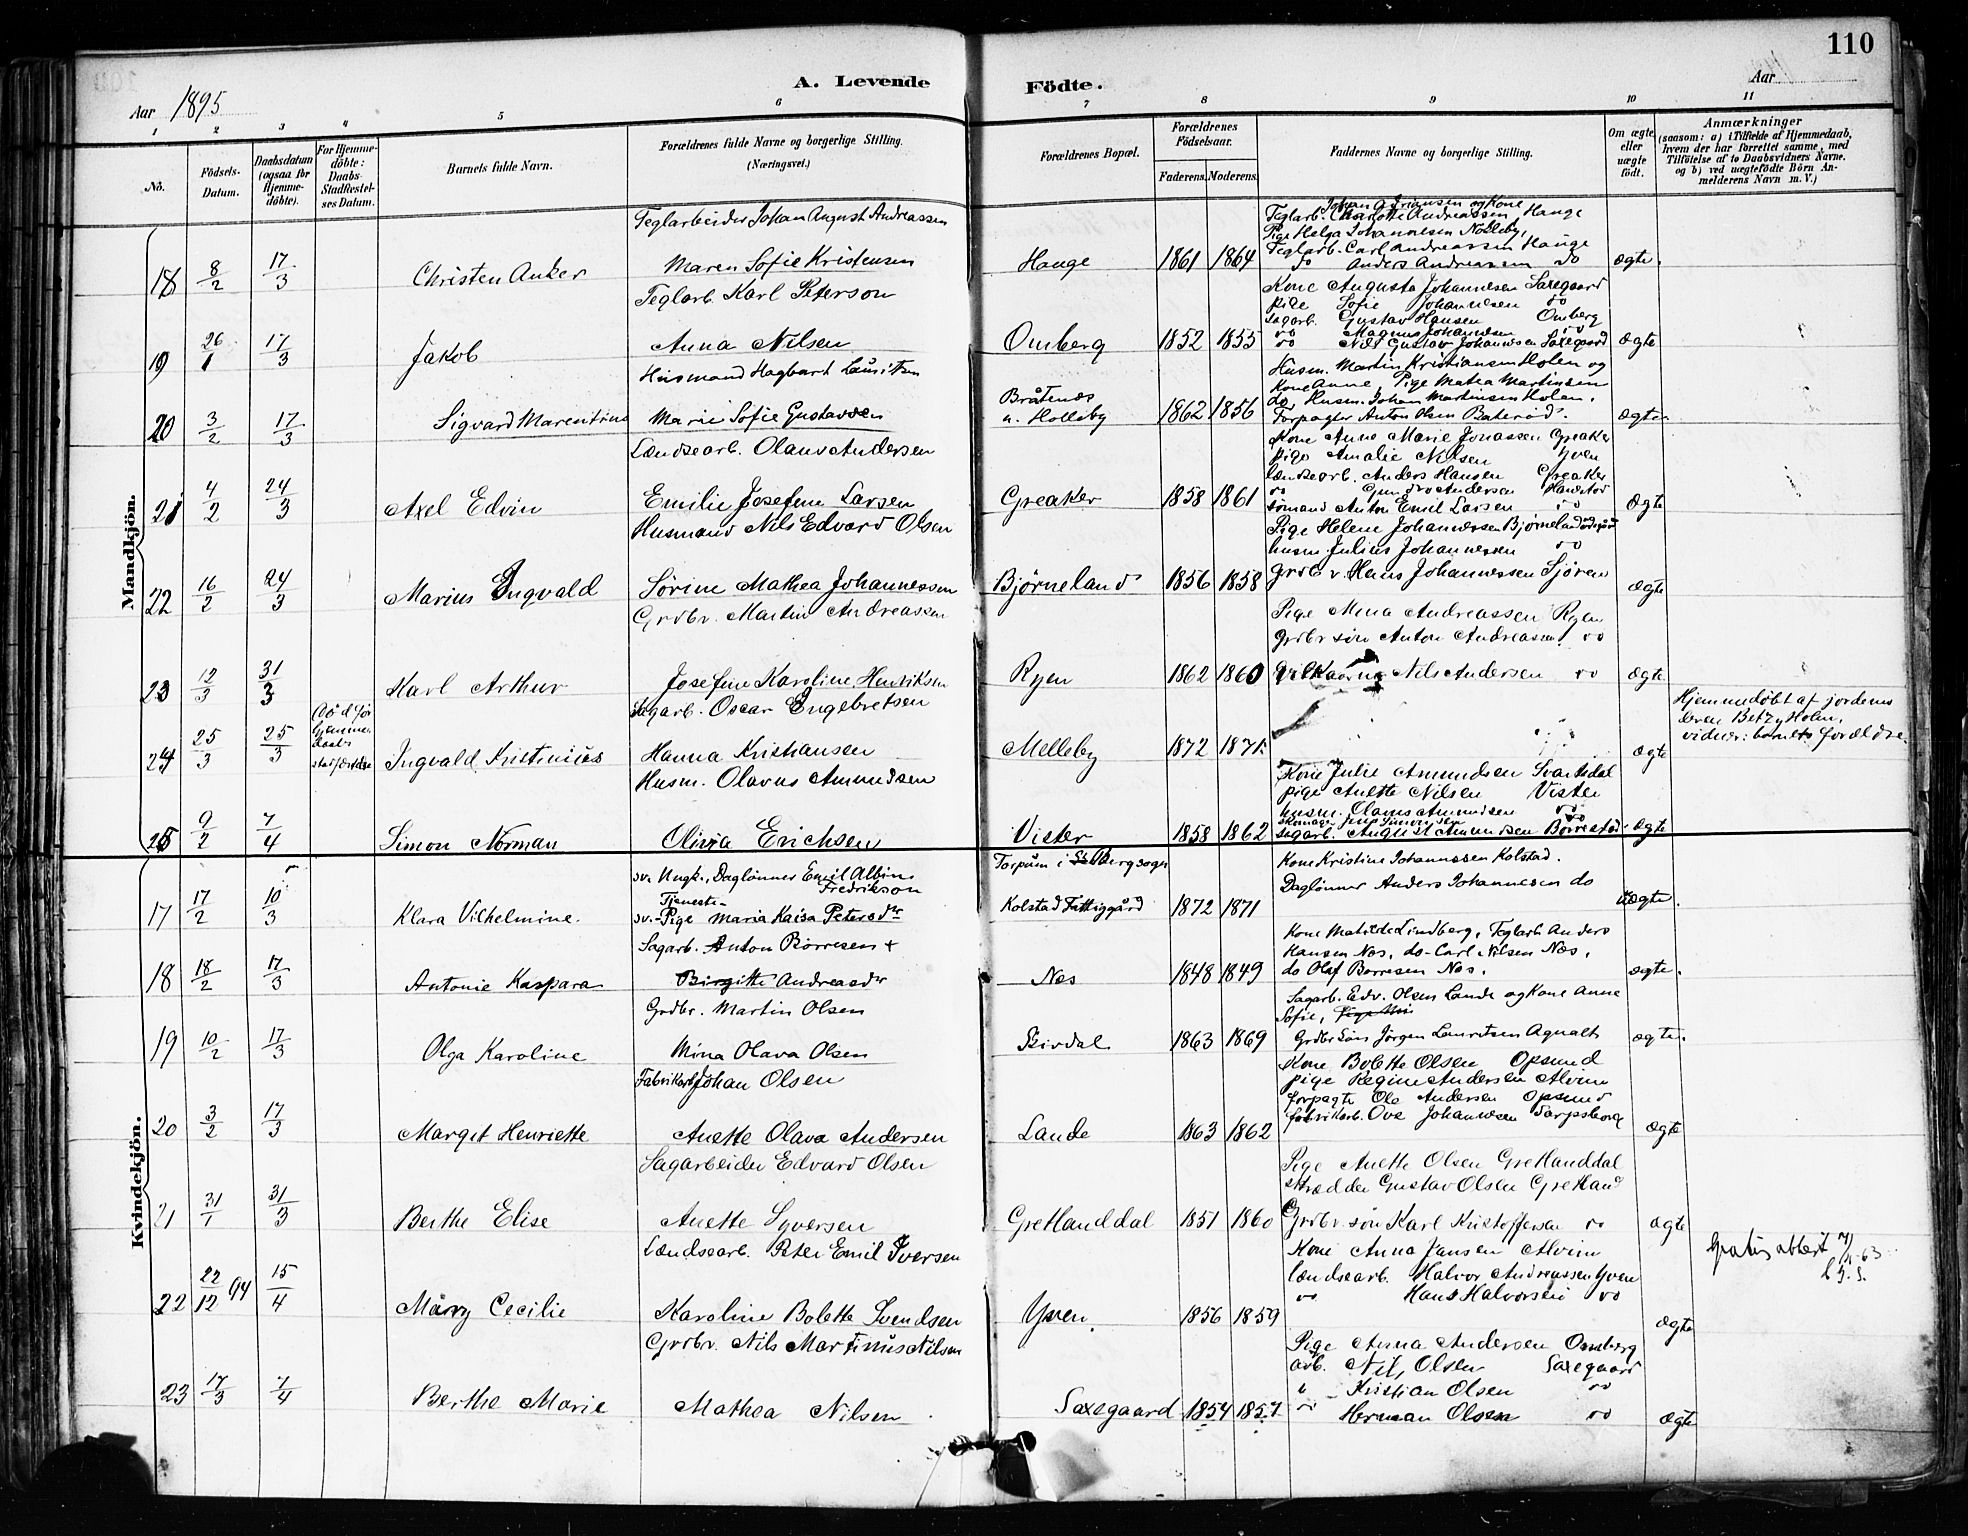 110
A. Levende Födte.
Aar 1895
Aar
1 2 3 4 5 6 7 8 9 10 11
No.
Födsels-Datum.
Daabsdatum (ogsaa for Hjemmedöbte).
For Hjemmedöbte: Daabs-Stadfæstelses Datum.
Barnets fulde Navn.
Forældrenes fulde Navne og borgerlige Stilling. (Næringsvei.)
Forældrenes Bopæl.
Forældrenes Födselsaar.
Faderens. Moderens.
Faddernes Navne og borgerlige Stilling.
Om ægte eller uægte födt.
Anmærkninger
(saasom: a) i Tilfælde af Hjemmedaab,
hvem der har forrettet samme, med
Tilföielse af to Daabsvidners Navne.
og b) ved uægtefödte Börn An-
melderens Navn m. V.)
Mandkjön.
Teglarbeider Johan August Andreassen
18 8/2 17/3 Christen Anker Maren Sofie Kristensen Hauge 1861 1864 ægte.
Teglarb. Charlotte Andreassen, Hauge
Pige Helga Johannesen Nolleby,
Teglarb. Carl Andreassen Hauge
do Anders Andreassen do
Teglarb. Karl Peterson
19 26/1 17/3 Jakob Anna Nilsen Omberg 1852 1855 ægte
Kone Augusta Johannesen Saxegaard
pige Sofie Johannesen do
sagarb. Gustav Hansen Omberg
do Magnus Johannesen do
do Nils Gustav Johannesen Saxegaard
Husmand Hagbart Lauritsen
20 3/2 17/3 Sigvard Marentius Marie Sofie Gustavsen Bråtenæs u. Holleby 1862 1856 ægte.
Husm. Martin Kristiansen Holen og
Kone Anne, Pige Matea Martinsen
do, Husm. Johan Martinsen Holen.
Forpagter Anton Olsen Baterød.
Lændsearb. Olaus Andersen
21 4/2 24/3 Axel Edvin Emilie Josefine Larsen Greaker 1858 1861 ægte
Kone Anne Marie Jonassen Greaker
pige Amalie Nilsen Yven
lændsearb. Anders Hansen Greaker
sömand Anton Emil Larsen do
Husmand Nils Edvard Olsen
22 16/2 24/3 Marius Ingvald Sörine Mathea Johannessen Björneland 1856 1858 ægte
Pige Helene Johannessen Björneland
husm. Julius Johannessen do
grdbr. Hans Johannessen Sjören
Grdbr. Martin Andreassen
23 12/3 31/3 Karl Arthur Josefine Karoline Henriksen Ryen 1862 1860 ægte
Pige Mina Andreassen Ryen
grdbr sön Anton Andreassen do
Nils Andersen do
Sagarb. Oscar Engebretsen
24 25/3 25/3 Död før hjemmedaabs stadfæstelse Ingvald Kristinius Hanna Kristiansen Melleby 1872 1871 ægte
Hjemmedøbt af jordemoderen Betzy Holm,
vidner: barnets forældre.
Husm. Olavus Amundsen
25 9/2 7/4 Simon Norman Olivia Erichsen Vister 1858 1862 ægte
Kone Julie Amundsen Svartsdal
pige Anette Nilsen Vister
husm. Olaus Amundsen do
sagarb. August Amundsen Börrestad
Kvindekjön.
sv. Ungk., Daglønner Emil Albin Fredrikson
17 17/2 10/3 Klara Vilhelmine. Tjeneste- sv.-Pige Maria Kaisa Petersdtr Torpum i Bergsogn Kolstad Fattiggård 1872 1871 uægte.
Kone Kristine Johannessen Kolstad.
Daglønner Anders Johannesen do
Sagarb. Anton Børresen +
18 18/2 17/3 Antonie Kaspara Birgitte Andreasdtr Nes 1848 1849 ægte.
Kone Matilde Lindberg, Teglarb Anders
Hansen Nes, do- Carl Nilsen Nes,
do Olaf Børresen Nes.
Grdbr. Martin Olsen
19 10/2 17/3 Olga Karoline Mina Olava Olsen 1863 1869 ægte.
Sagarb. Edv. Olsen Lande og Kone Anne
Sofie,
Grdbr Søn Jørgen Lauritsen Agnalt
Fabrikarb. Johan Olsen
20 3/2 17/3 Margit Henriette Anette Olava Andersen Lande 1863 1862 ægte
Kone Bolette Olsen Opsund
pige Regine Andersen Alvim
forpagter Ole Andersen Opsund
fabrikarb. Ove Johannesen Sarpsborg
Sagarbeider Edvard Olsen
21 31/1 31/3 Berthe Elise Anette Syversen Gretlanddal 1851 1860 ægte
Pige Anette Olsen Gretlanddal
skrædder Gustav Olsen Gretland
Grdbr. sön Karl Kristoffersen do
Lændsearb. Peter Emil Iversen
22 22/12 94 15/4 Mary Cecilie Karoline Bolette Svendsen Yven 1856 1859 ægte
Kone Anna Jansen Alvim
lændsearb. Halvor Andreassen Yven
do Hans Halvorsen do
Grdbr. Nils Martinus Nilsen
23 17/3 7/4 Berthe Marie Mathea Nilsen Saxegaard 1854 1857 ægte
Pige Anna Andersen Omberg
arb. Nils Olsen Saxegaard
" Kristian Olsen do
do Herman Olsen do